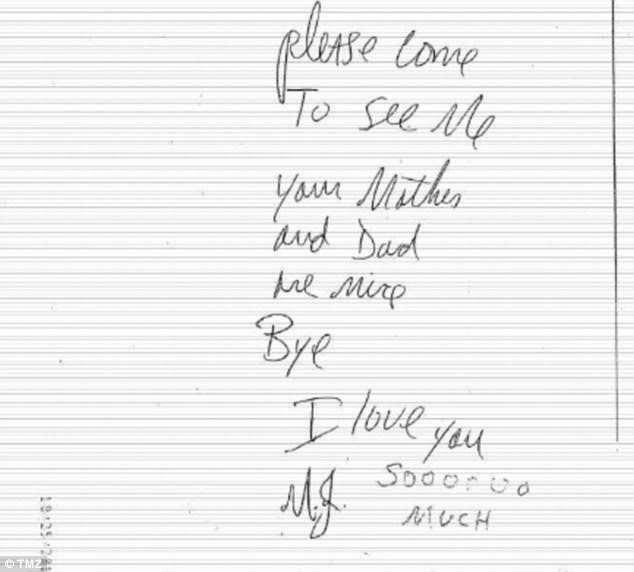 please come
To see Me
your Mother
and Dad
are nice
Bye
I love you
M.J. Soooroo
MUCH
© TMZ